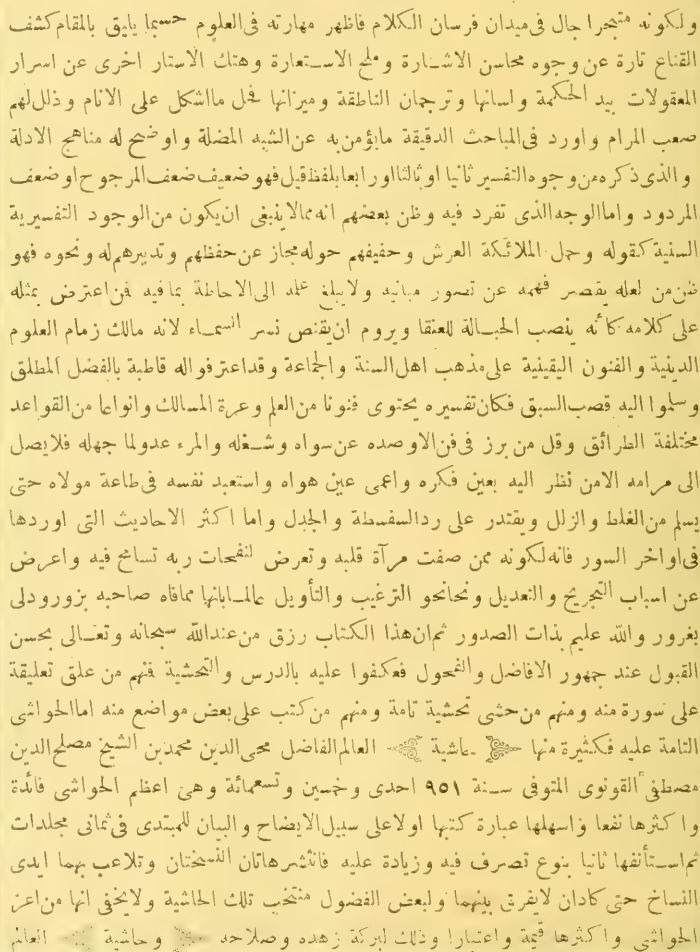 ولكونه متبحرا جال فى ميدان فرسان الكلام فاظهر مهارته فى العلوم حسبما يليق بالمقام كشف
القناع تارة عن وجوه محاسن الاشارة وملح الاستعارة وهتك الاستار اخرى عن اسرار
المعقولات بيد الحكمة ولسانها وترجمان الناطقة وميزانها فحل مااشكل على الانام وذلل لهم
صعب المرام واورد فى المباحث الدقيقة مايؤمن به عن الشبه المضلة واوضح له مناهج الادلة
والذى ذكره من وجوه التفسير ثانيا او ثالثا او رابعا بلفظ قيل فهو ضعيف ضعف المرجوح او ضعف
المردود واما الوجه الذى تفرد فيه وظن بعضهم انه مما لاينبغى ان يكون من الوجود التفسيرية
السنية كقوله وحمل الملائكة العرش وحفيفهم حوله مجاز عن حفظهم وتدبيرهم له ونحوه فهو
ظن من لعله يقصر فهمه عن تصور مبانيه ولايبلغ علمه الى الاحاطة بمافيه فمن اعترض بمثله
على كلامه كأنه ينصب الحبالة للعنقا ويروم ان يقنص نسر السماء لانه مالك زمام العلوم
الدينية والفنون اليقينية على مذهب اهل السنة والجماعة وقد اعترفوا له قاطبة بالفضل المطلق
وسلموا اليه قصب السبق فكان تفسيره يحتوى فنونا من العلم وعرة المسالك وانواعا من القواعد
مختلفة الطرائق وقل من برز فى فن الا وصده عن سواه وشغله والمرء عدو لما جهله فلايصل
الى مرامه الامن نظر اليه بعين فكره واعمى عين هواه واستعبد نفسه فى طاعة مولاه حتى
يسلم من الغلط والزلل ويقتدر على رد السفسطة والجدل واما اكثر الاحاديث التى اوردها
فى اواخر السور فانه لكونه ممن صفت مرآة قلبه وتعرض لنفحات ربه تسامح فيه واعرض
عن اسباب التجريح والتعديل ونحا نحو الترغيب والتأويل عالما بانها ممافاه صاحبه بزور ودلى
بغرور والله عليم بذات الصدور ثم ان هذا الكتاب رزق من عند الله سبحانه وتعالى بحسن
القبول عند جمهور الافاضل والفحول فعكفوا عليه بالدرس والتحشية فمنهم من علق تعليقة
على سورة منه ومنهم من حشى تحشية تامة ومنهم من كتب على بعض مواضع منه اما الحواشى
التامة عليه فكثيرة منها حاشية العالم الفاضل محيى الدين محمد بن الشيخ مصلح الدين
مصطفى القونوى المتوفى سنة ٩٥١ احدى وخمسين وتسعمائة وهى اعظم الحواشى فائدة
واكثرها نفعا واسهلها عبارة كتبها اولا على سبيل الايضاح والبيان للمبتدى فى ثمانى مجلدات
ثم استأنفها ثانيا بنوع تصرف فيه وزيادة عليه فانتشرهاتان النسختان وتلاعب بهما ايدى
النساخ حتى كادان لايفرق بينهما ولبعض الفضول منتخب تلك الحاشية ولايخفى انها من اعز
الحواشى واكثرها قيمة واعتبارا وذلك لبركة زهده وصلاحه وحاشية العالم